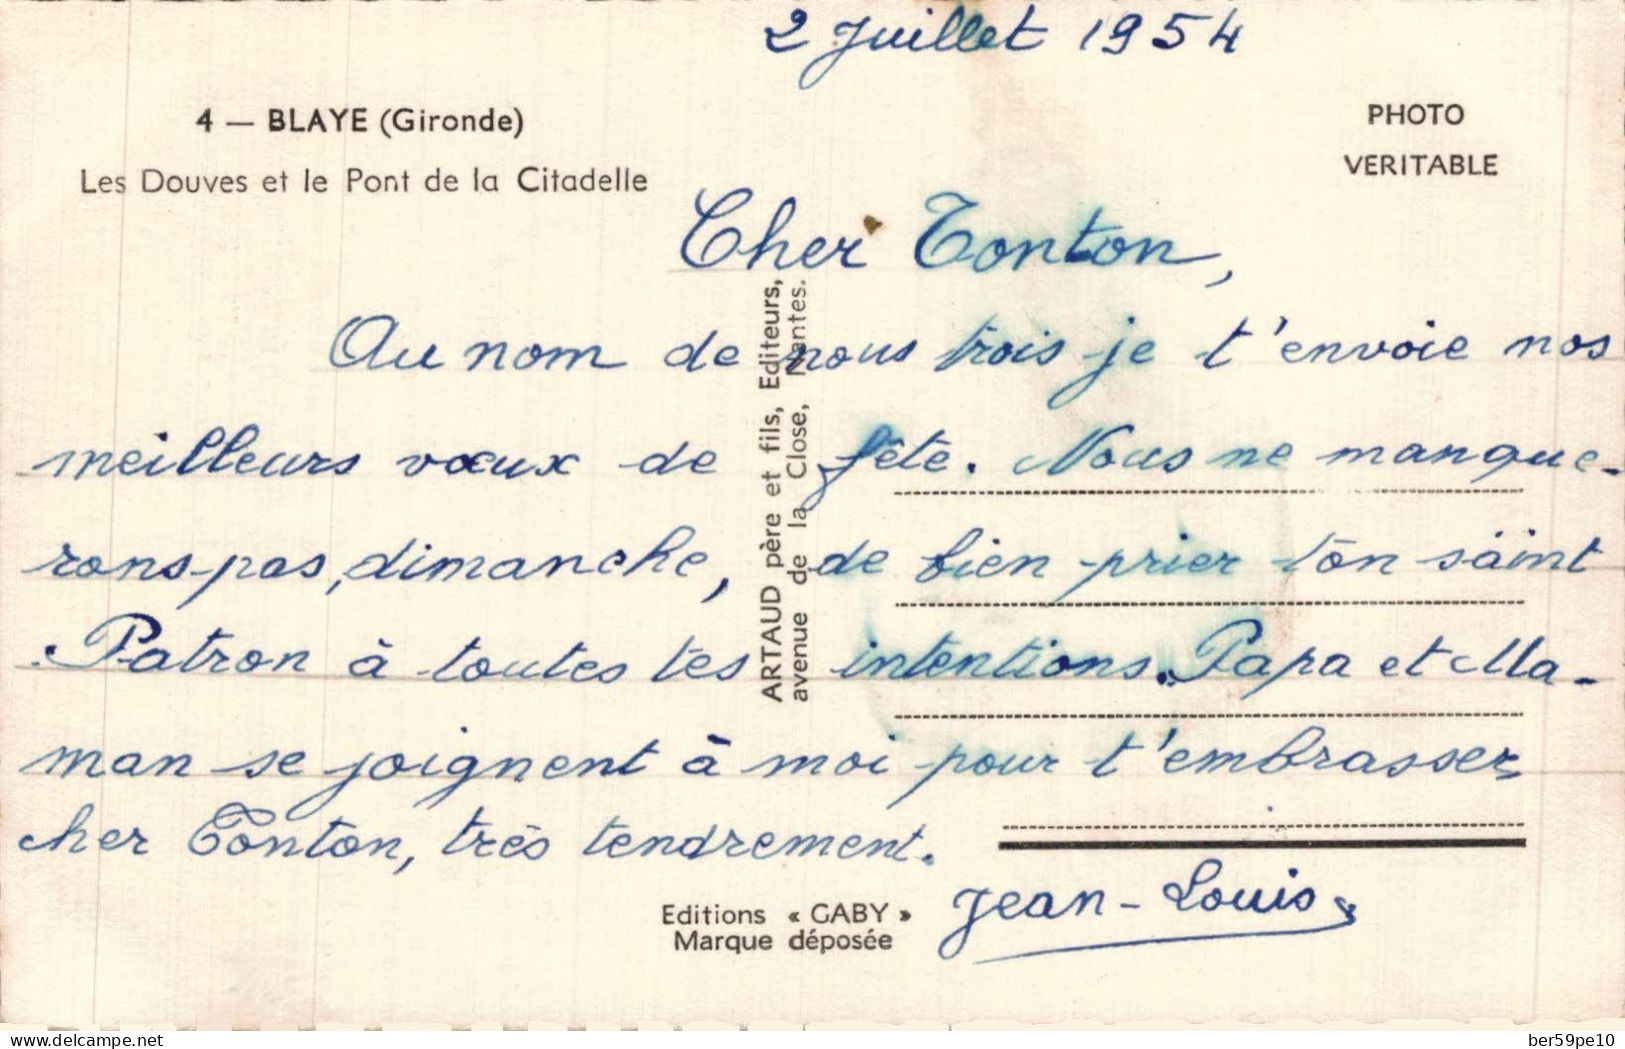 2 Juillet 1954
4 — BLAYE (Gironde)
Les Douves et le Pont de la Citadelle
PHOTO
VERITABLE
Cher Tonton,
Au nom de nous trois je t'envoie nos
meilleurs vœux de fête. Nous ne manque-
rons pas, dimanche, de bien prier ton saint
Patron à toutes tes intentions. Papa et Ma-
man se joignent à moi pour t'embrasser,
cher Tonton, très tendrement.
Jean-Louis
ARTAUD père et fils, Editeurs,
avenue de la Close, Nantes.
Editions « GABY »
Marque déposée
delcampe.net
ber59pe10